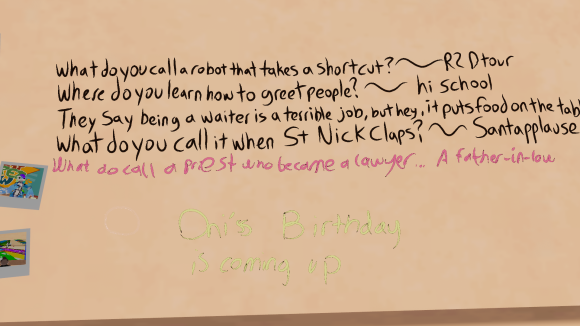 What do you call a robot that takes a shortcut? ~ R2 Dtour
Where do you learn how to greet people? ~ hi school
They say being a waiter is a terrible job, but hey, it puts food on the tab
What do you call it when St Nick Claps? ~ Santapplause
What do call a priest who became a lawyer... A father-in-law
Oni's Birthday
is coming up